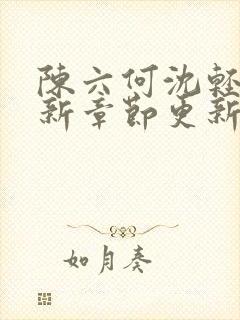 陳六何沈輕
新章節更新
如月奏